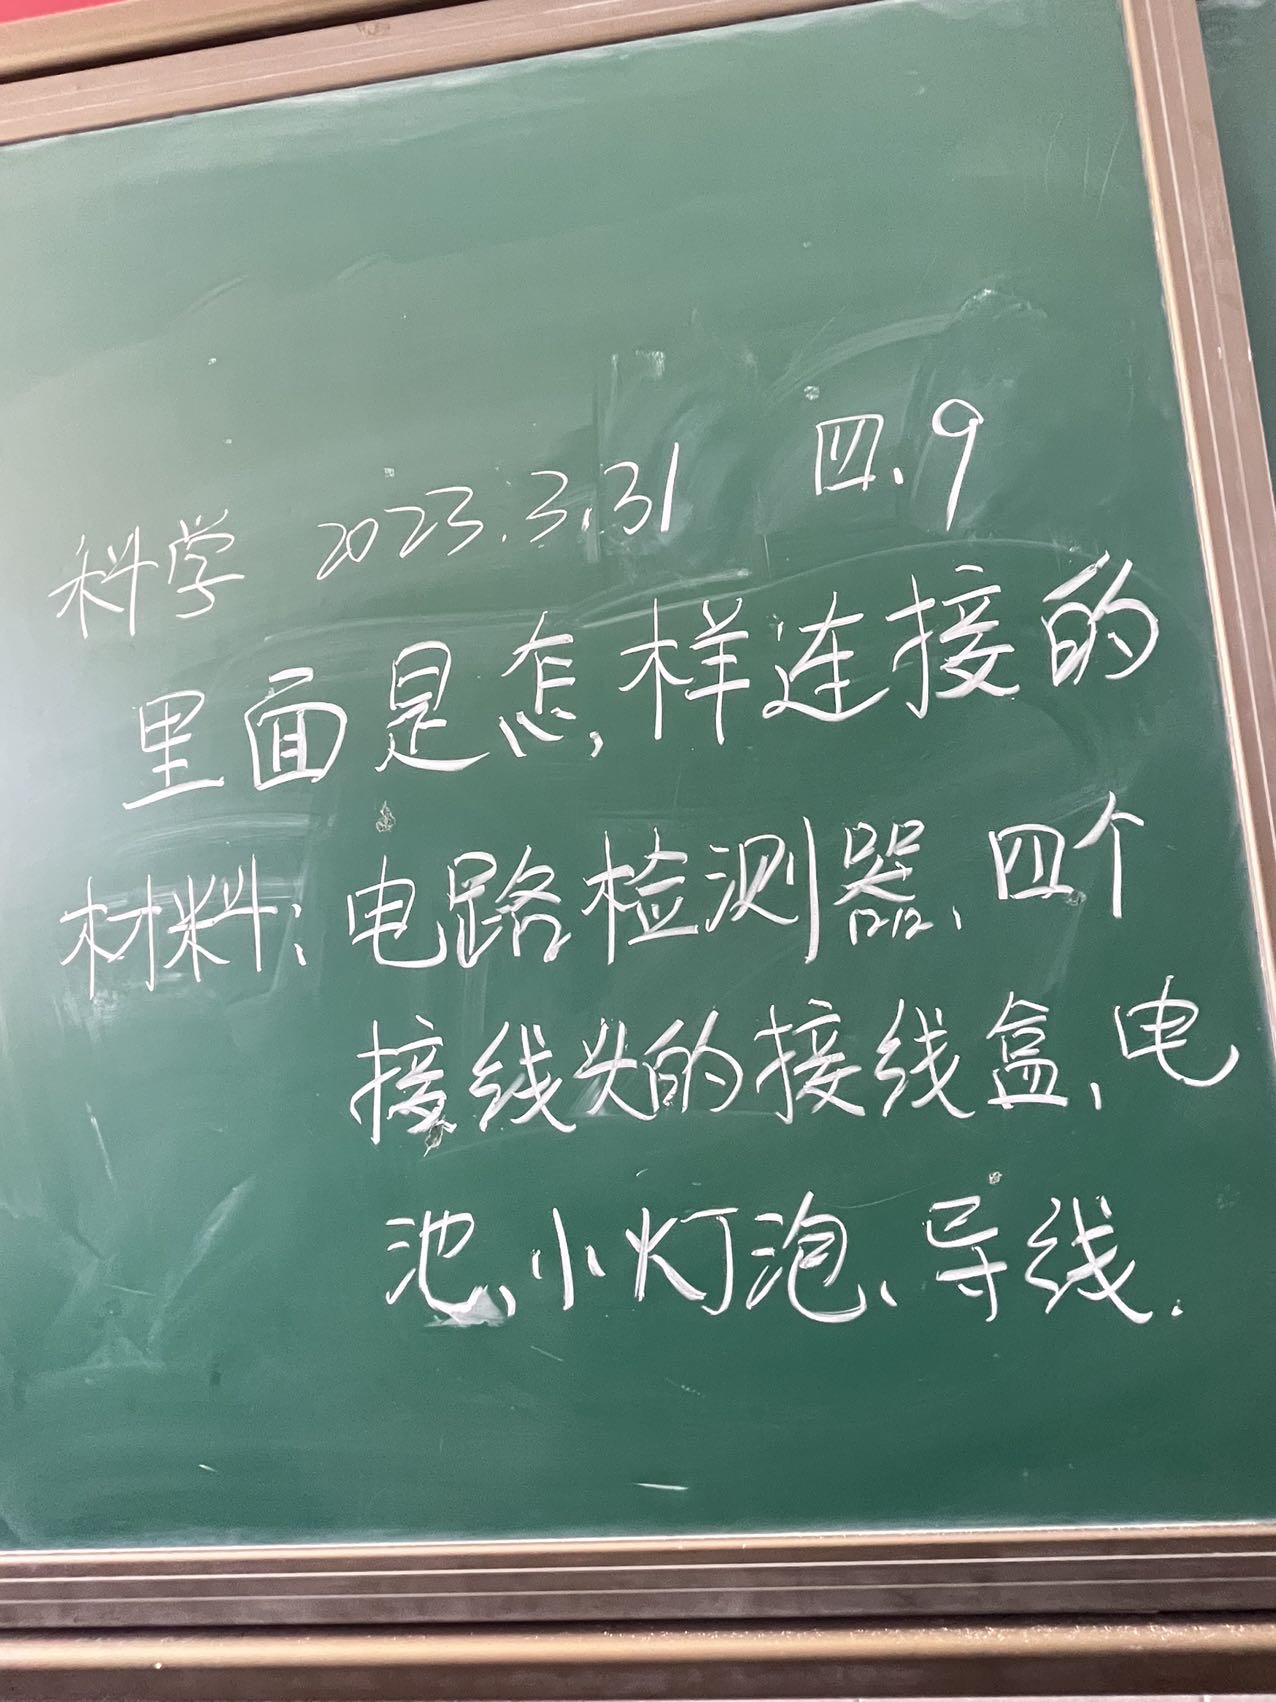 科学 2023.3.31 四.9
里面是怎样连接的
材料：电路检测器、四个
接线头的接线盒、电
池、小灯泡、导线.